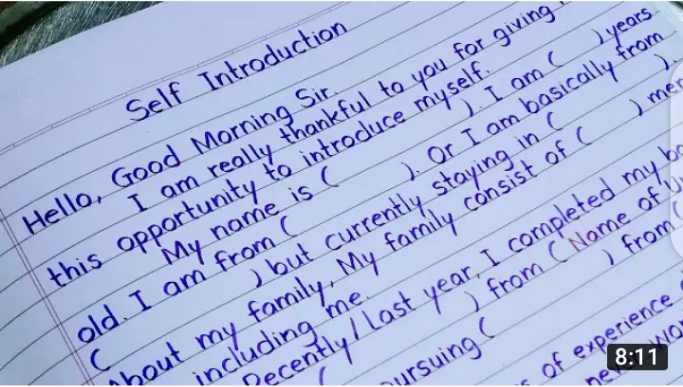 Self Introduction
Hello, Good Morning Sir.
I am really thankful to you for giving
this opportunity to introduce myself.
My name is ( ). I am ( ) years
old. I am from ( ). Or I am basically from
( ) but currently staying in ( ).
About my family, My family consist of ( ) mem
including me.
Recently / Last year, I completed my ba
( ) from (Name of Un
ursuing ( ) from (
s of experience
8:11